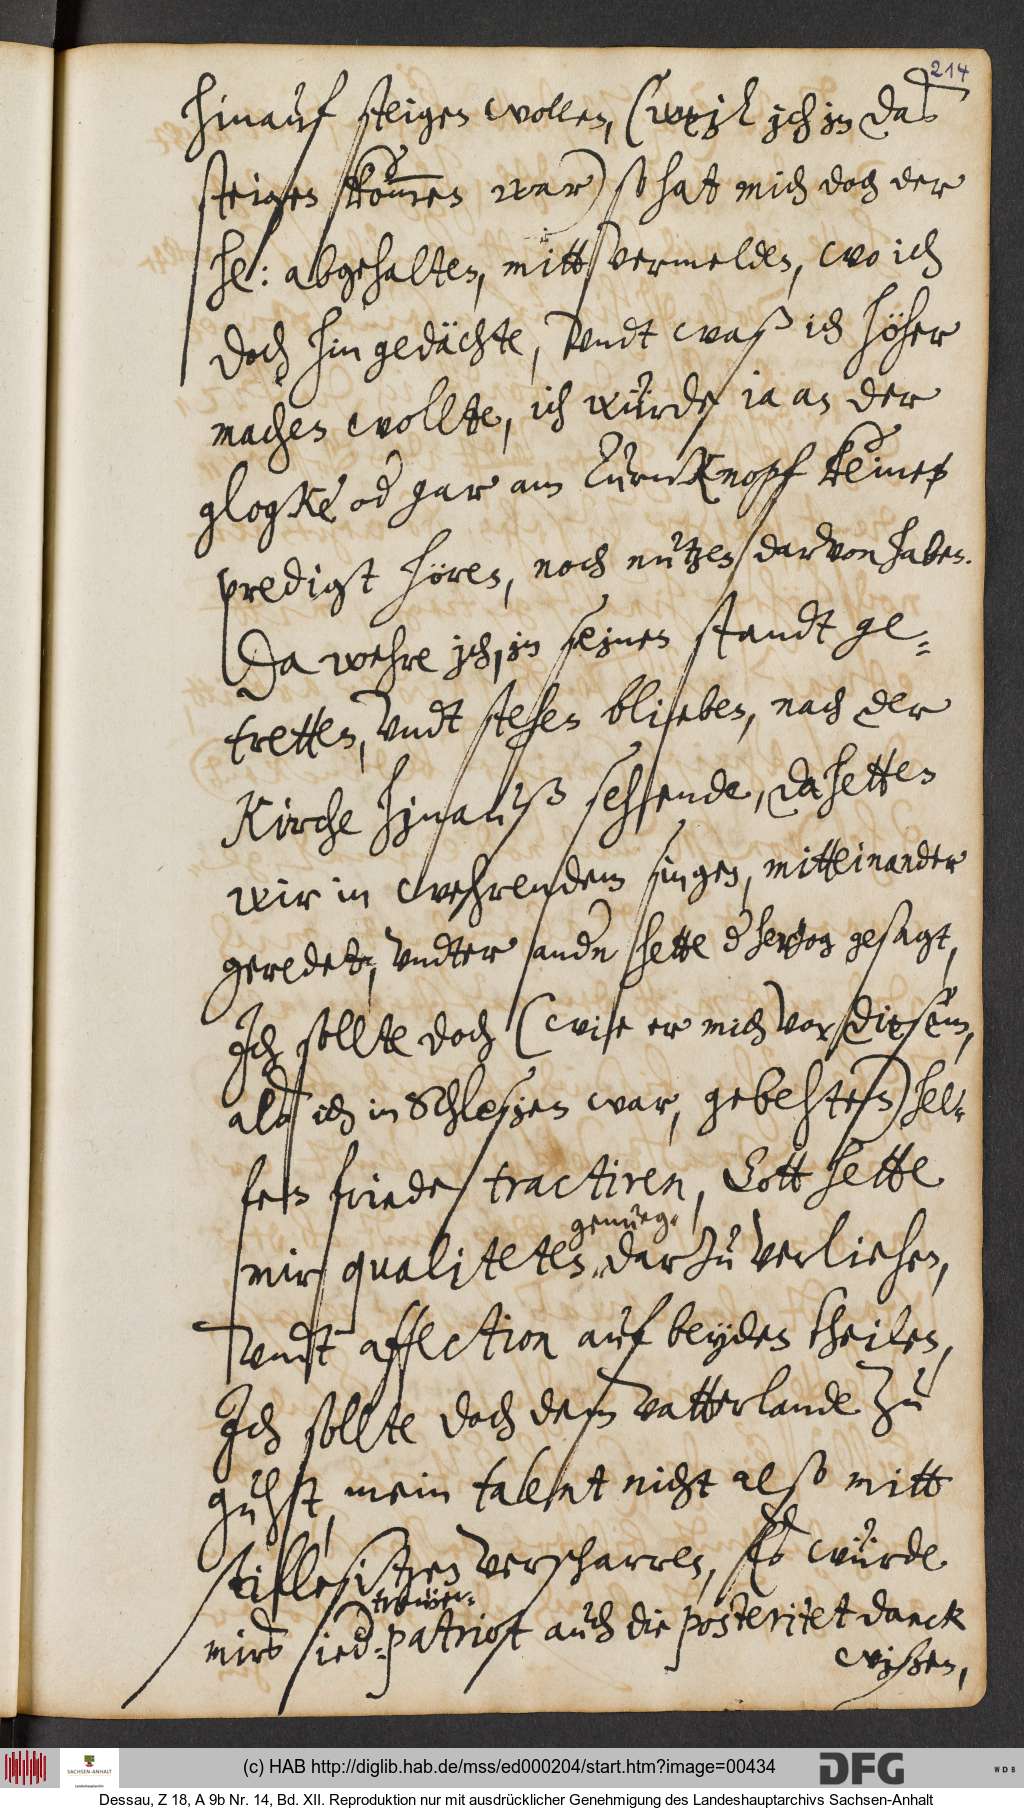 214
hinauf steigen wollen, (weil ich in das
steigen kommen war) so hat mich doch der
he: abgehalten, mitt vermelden, wo ich
doch hin gedächte, undt waß ich höher
machen wollte, ich würde ia an der
glogke od gar am Turn Knopf keine
predigt hören, noch nutzen darvon haben.
Da wehre ich, in seinen standt ge-
tretten, undt stehen blieben, nach der
Kirche hinauß sehende, da hetten
wir in wehrendem singen, mitteinander
geredet, undter andn hette d hertzog gesagt,
Ich sollte doch (wie er mich vor diesem,
als ich in Schlesien war, gebehten) hel-
fen friede tractiren, Gott hette
genueg.
mir qualiteten, darzu verliehen,
undt affection auf beyden theilen,
Ich sollte doch dem vatterlande zu
guht, mein talent nicht also mitt
stillesitzen verscharren, Es würde
trewer-
mirs ied- patriot auch die posteritet danck
wißen,
(c) HAB http://diglib.hab.de/mss/ed000204/start.htm?image=00434
SACHSEN-ANHALT
DFG
WDB
Dessau, Z 18, A 9b Nr. 14, Bd. XII. Reproduktion nur mit ausdrücklicher Genehmigung des Landeshauptarchivs Sachsen-Anhalt